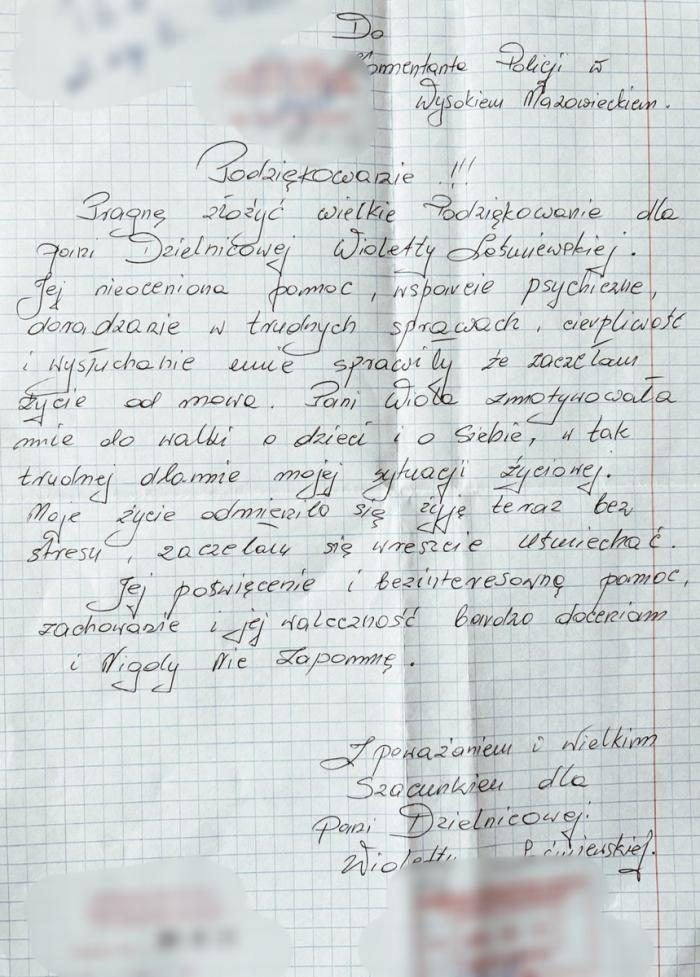 Do
Komentanta Policji w
Wysokiem Mazowieckiem.
Podziękowanie !!!
Pragnę złożyć wielkie Podziękowanie dla
pani Dzielnicowej Wioletty
Jej nieoceniona pomoc, wsparcie psychiczne,
doradzanie w trudnych sprawach, cierpliwość
i wysłuchanie mnie sprawiły że zaczełam
życie od nowa. Pani Wiola zmotywowała
mnie do walki o dzieci i o Siebie, w tak
trudnej dla mnie mojej sytuacji życiowej.
Moje życie odmieniło się żyję teraz bez
stresu, zaczełam się wreszcie uśmiechać.
Jej poświęcenie i bezinteresowną pomoc,
zachowanie i jej waleczność bardzo doceniam
i Nigdy Nie Zapomnę.
Z poważaniem i Wielkim
Szacunkiem dla
Pani Dzielnicowej.